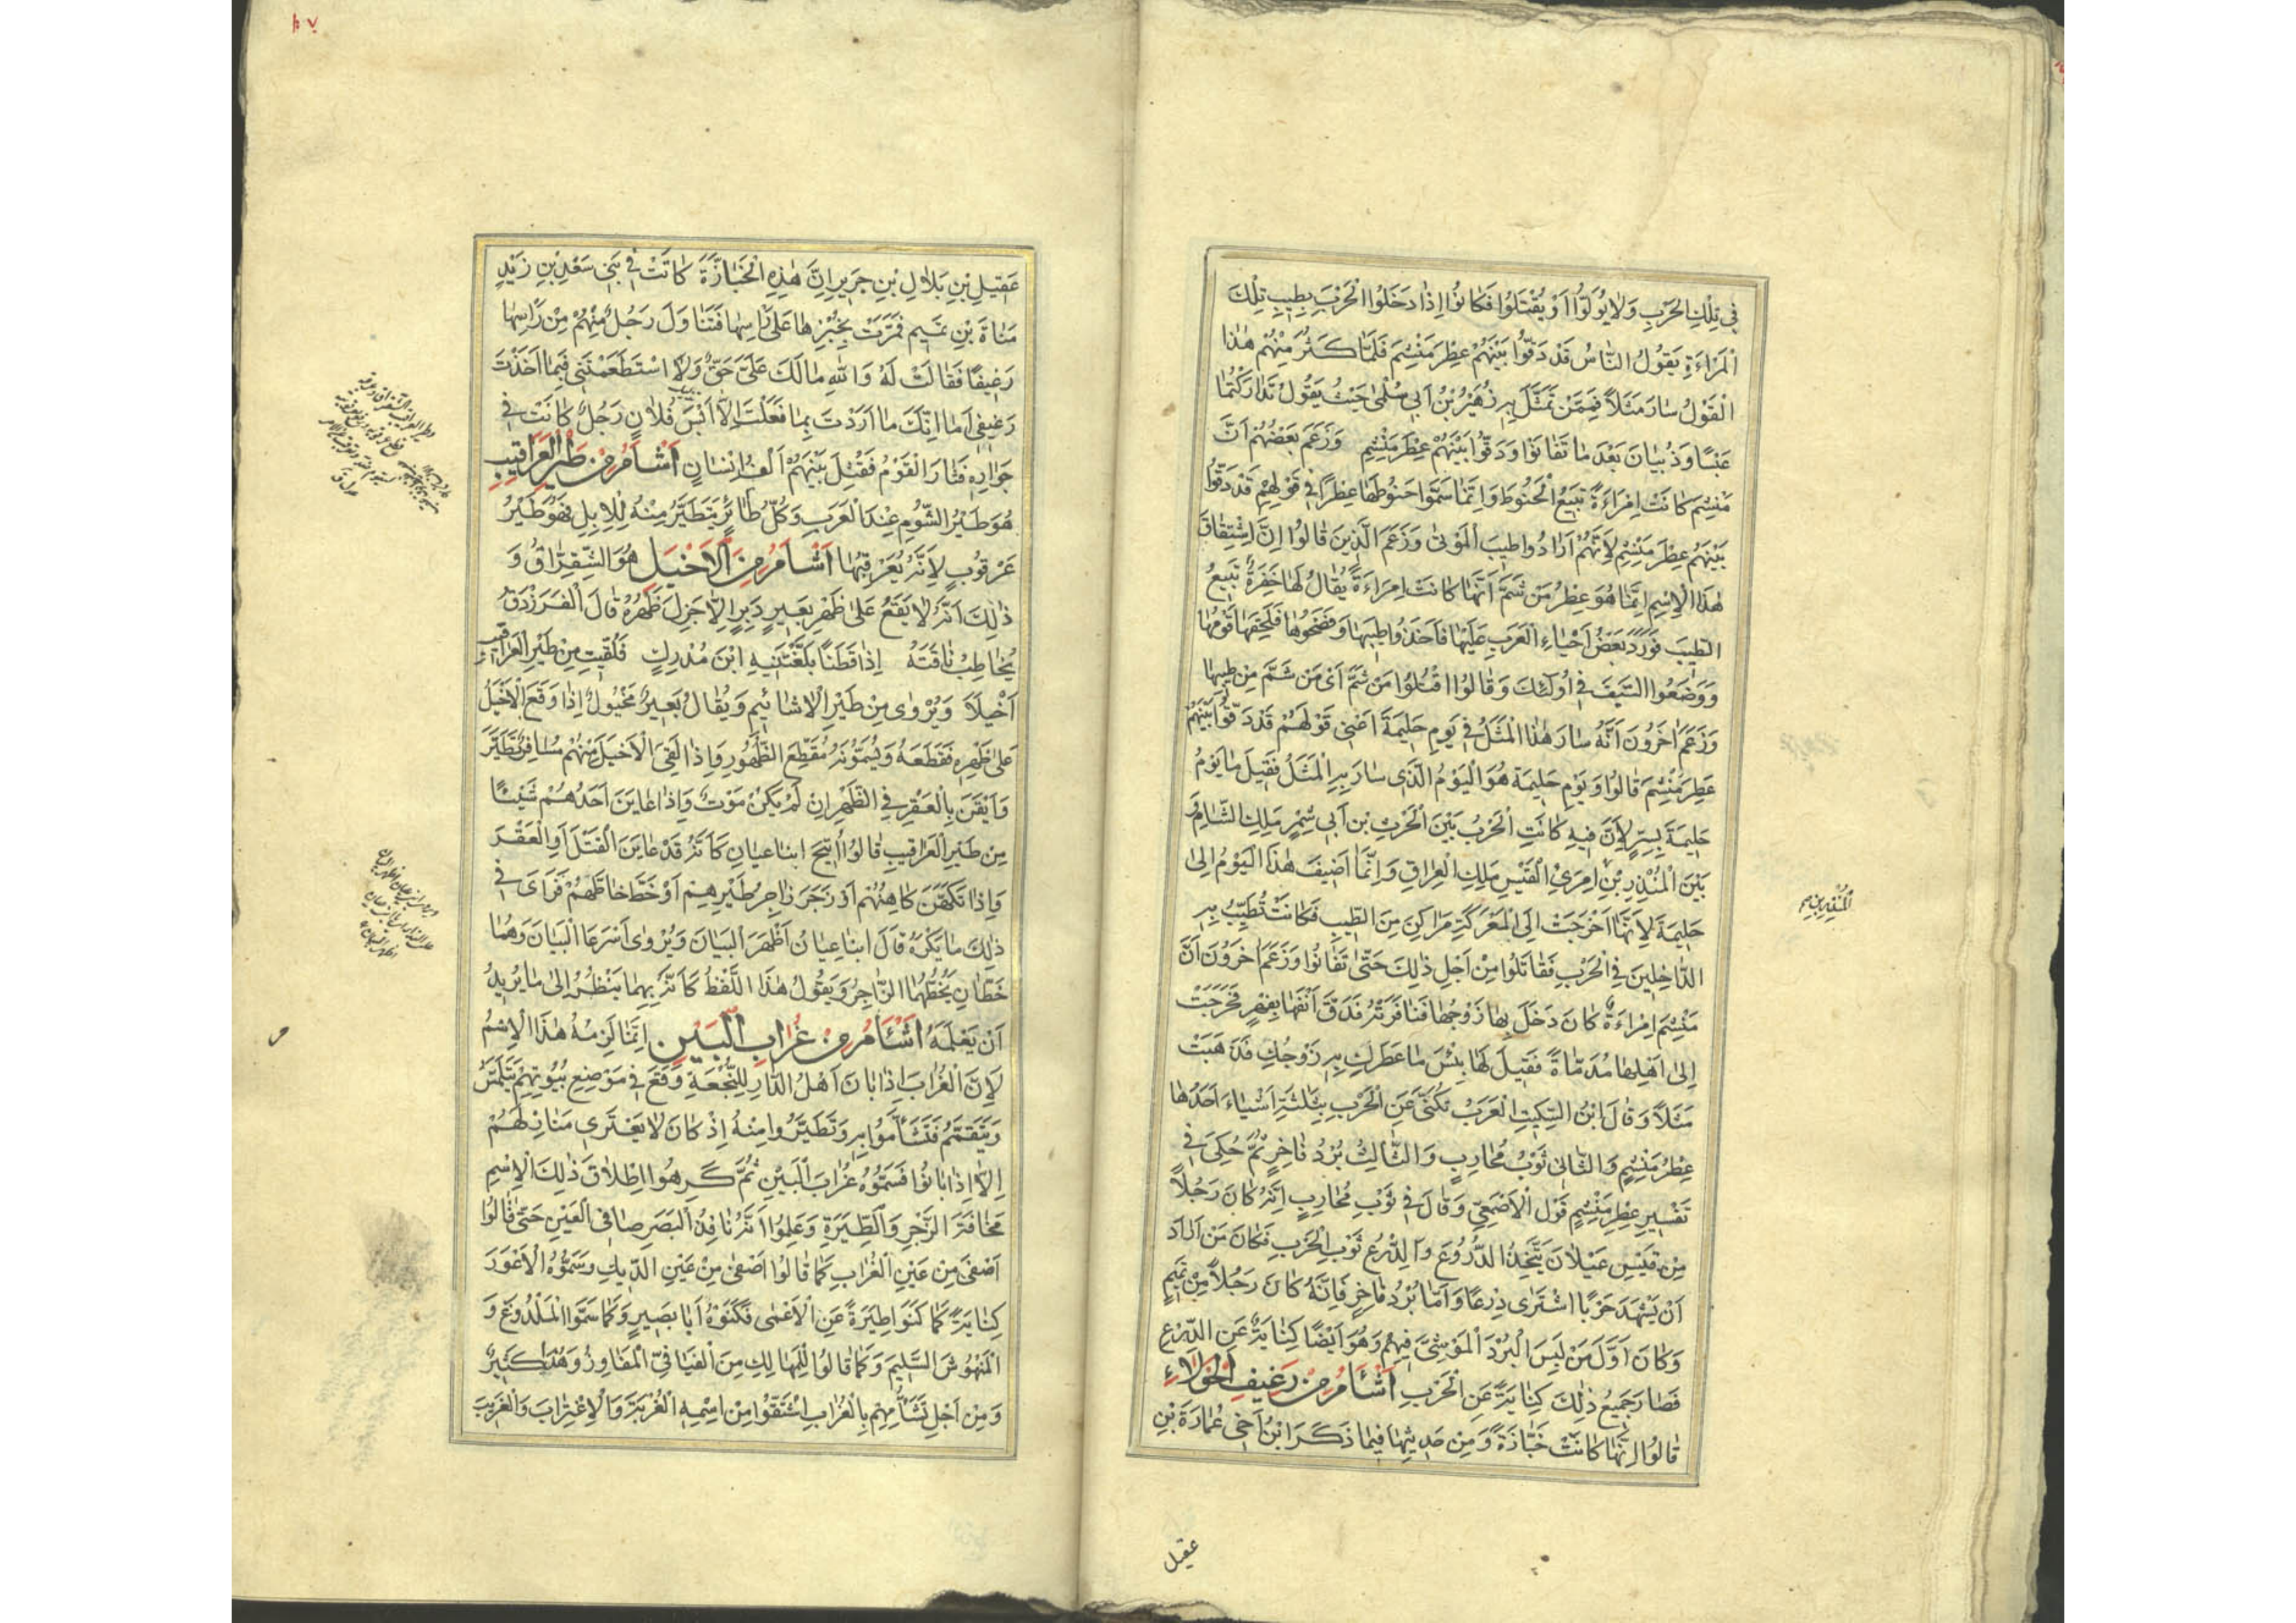 في تلك الحرب ولا يولوا او يقتلوا فكانوا اذا دخلوا الحرب بطيب تلك
المراءة يقول الناس قد دقوا بينهم عطر منشم فلما كثر منهم هذا
القول سار مثلا فممن تمثل به زهير بن ابي سلمى حيث يقول تداركتما
عبسا وذبيان بعد ما تفانوا ودقوا بينهم عطر منشم وزعم بعضهم ان
منشم كانت امراءة تبيع الحنوط وانما سموا حنوطها عطرا في قولهم قد دقوا
بينهم عطر منشم لانهم ارادوا طيب الموتى وزعم الذين قالوا ان اشتقاق
هذا الاسم انما هو عطر من شم انها كانت امراءة يقال لها خفرة تبيع
الطيب فورد بعض احياء العرب عليها فاخذوا طيبها وفضحوها فلحقها قومها
ووضعوا السيف في اولئك وقالوا اقتلوا من شم اى من شم من طيبها
وزعم اخرون انه سار هذا المثل في يوم حليمة اعني قولهم قد دقوا بينهم
عطر منشم قالوا ويوم حليمة هو اليوم الذى سار به المثل فقيل ما يوم
حليمة بسر لان فيه كانت الحرب بين الحرث بن ابي شمر ملك الشام و
بين المنذر بن امرئ القيس ملك العراق وانما اضيف هذا اليوم الى
حليمة لانها اخرجت الى المعركة مراكن من الطيب فكانت تطيب به
الداخلين في الحرب فقاتلوا من اجل ذلك حتى تفانوا وزعم اخرون ان
منشم امراءة كان دخل بها زوجها فنافرته فدق انفها بفهر فخرجت
الى اهلها مدماة فقيل لها بئس ما عطرك به زوجك فذهبت
مثلا وقال ابن السكيت العرب تكنى عن الحرب بثلثة اشياء احدها
عطر منشم والثاني ثوب محارب والثالث برد فاخر ثم حكى في
تفسير عطر منشم قول الاصمعي وقال في ثوب محارب انه كان رجلا
من قيس عيلان يتخذ الدروع والدرع ثوب الحرب فكان من اراد
ان يشهد حربا اشترى درعا واما برد فاخر فانه كان رجلا من تميم
وكان اول من لبس البرد الموشى فيهم وهو ايضا كناية عن الدرع
فصار جميع ذلك كناية عن الحرب اشأم من رغيف الحولاء
قالوا انها كانت خبازة ومن حديثها فيما ذكر ابن اخي عمارة بن
عقيل
المنذر بن
عقيل بن بلال بن جرير ان هذه الخبازة كانت في بني سعد بن زيد
مناة بن تميم فمرت بخبزها على راسها فتناول رجل منهم من راسها
رغيفا فقالت له والله ما لك علي حق ولا استطعمتني فيما اخذت
رغيفي اما انك ما اردت بما فعلت الا ابس فلان رجل كانت في
جواره فثار القوم فقتل بينهم الف انسان اشأم من طير العراقيب
هو طير الشوم عند العرب وكل طائر يتطير منه للابل فهو طير
عرقوب لانه يعرقبها اشأم من الاخيل هو الشقراق و
ذلك انه لا يقع على ظهر بعير دبر الا جزل ظهره قال الفرزدق
يخاطب ناقته اذا قطنا بلغتنيه ابن مدرك فلقيت من طير العراقيب
اخيلا ويروى من طير الاشائيم ويقال بعير مخيول اذا وقع الاخيل
على ظهره فقطعه ويسمونه مقطع الظهور واذا لقي الاخيل منهم مسافر تطير
وايقن بالعقر في الظهر ان لم يكن موت واذا عاين احدهم شيئا
من طير العراقيب قالوا اتيح ابنا عيان كانه قد عاين القتل او العقر
واذا تكهن كاهنهم او زجر زاجر طيرهم او خط خاطهم فراى في
ذلك ما يكره قال ابنا عيان اظهر البيان ويروى اسرعا البيان وهما
خطان يخطهما الزاجر ويقول هذا اللفظ كانه بهما ينظر الى ما يريد
ان يعلمه اشأم من غراب البين انما لزمه هذا الاسم
لان الغراب اذا بان اهل الدار للنجعة وقع في موضع بيوتهم يتلمس
ويتقمم فتشأموا به وتطيروا منه اذ كان لا يعترى منازلهم
الا اذا بانوا فسموه غراب البين ثم كرهوا اطلاق ذلك الاسم
مخافة الزجر والطيرة وعلموا انه نافذ البصر صافى العين حتى قالوا
اصفى من عين الغراب كما قالوا اصفى من عين الديك وسموه الاعور
كناية كما كنوا طيرة عن الاعمى فكنوه ابا بصير وكما سموا الملدوغ و
المنهوش السليم وكما قالوا للمهالك من الفيافي المفاوز وهذا كثير
ومن اجل تشأمهم بالغراب اشتقوا من اسمه الغربة والاغتراب والغريب